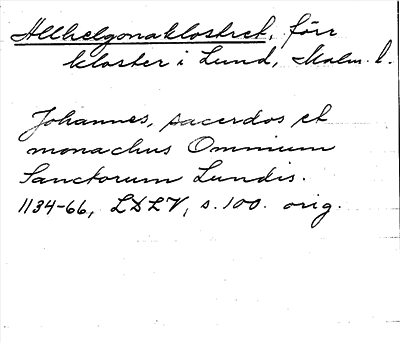 Allhelgonaklostret, förr
kloster i Lund, Malm. l.
Johannes, sacerdos et
monachus Omnium
Sanctorum Lundis.
1134-66, LDLV, s. 100. orig.